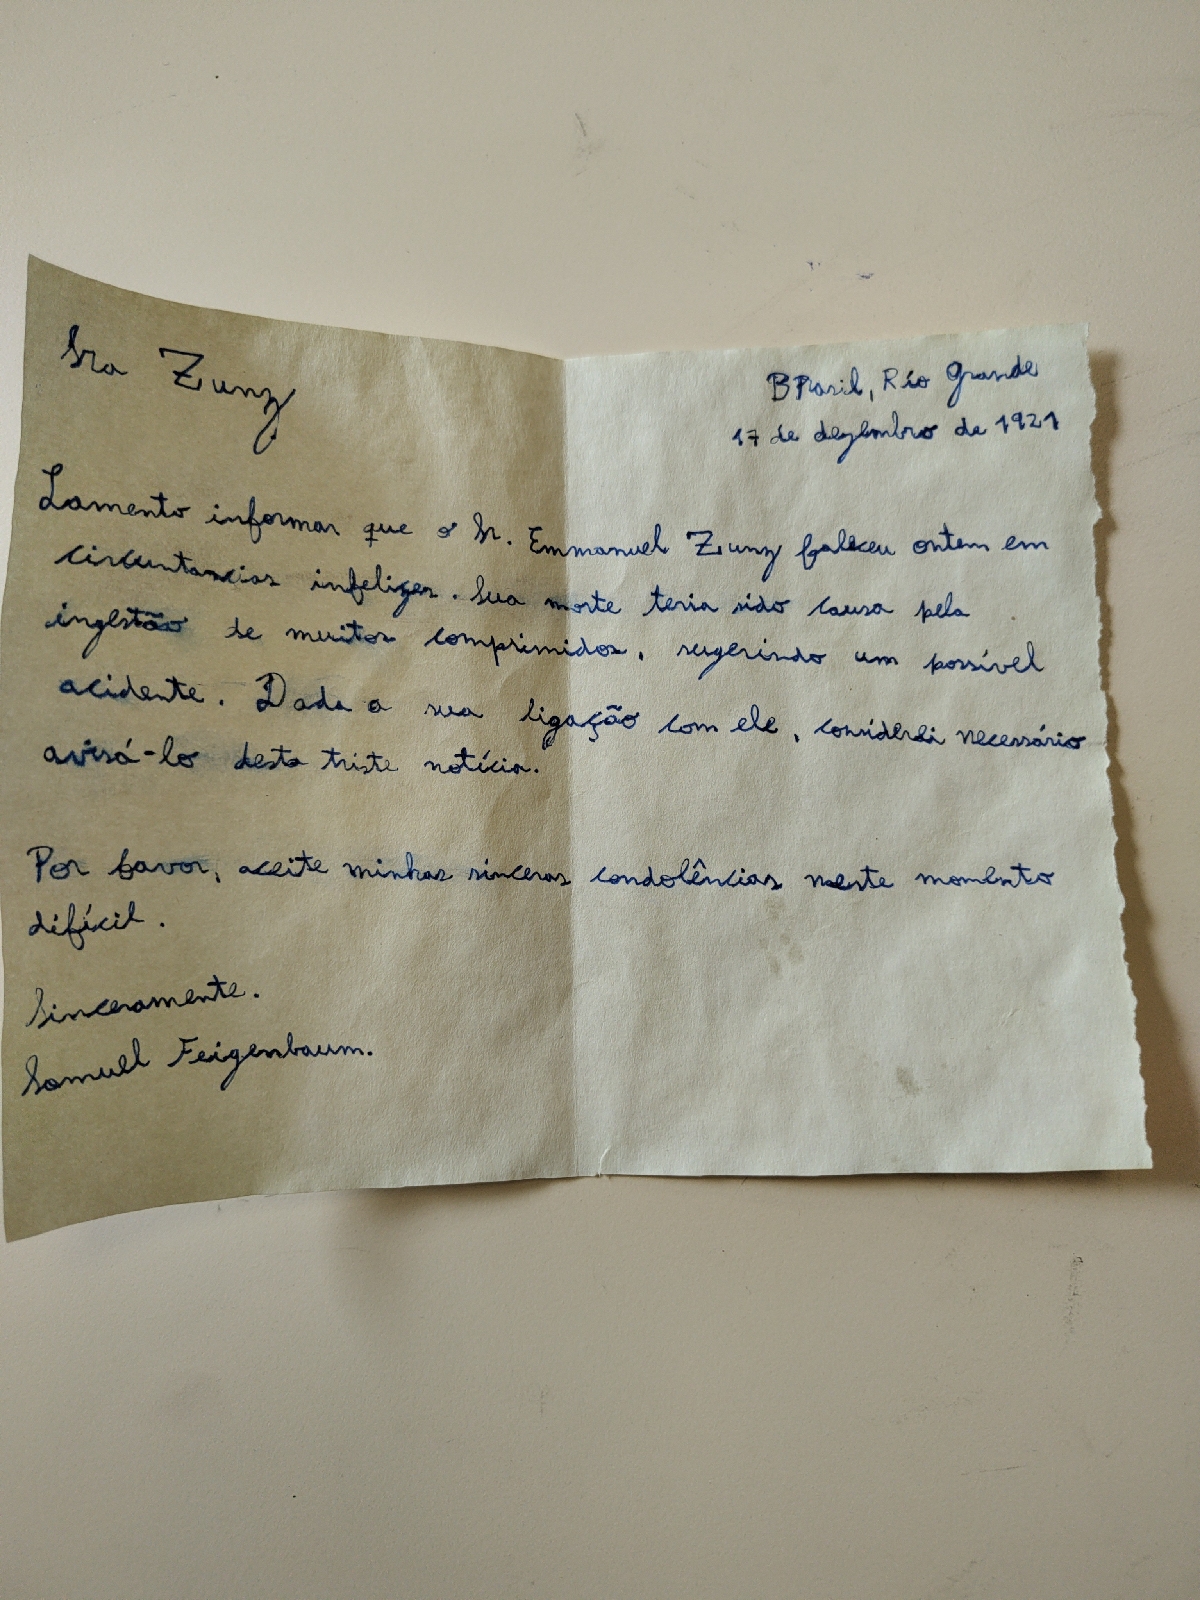 Sra Zunz
BRasil, Río Grande
17 de dezembro de 1921
Lamento informar que o Sr. Emmanuel Zunz faleceu ontem em
circuntancias infelizes. Sua morte teria sido causa pela
ingestão de muitos comprimidos, sugerindo um possível
acidente. Dada a sua ligação com ele, considerei necessário
avisá-lo desta triste notícia.
Por favor, aceite minhas sinceras condolências neste momento
difícil.
Sinceramente.
Samuel Feigenbaum.